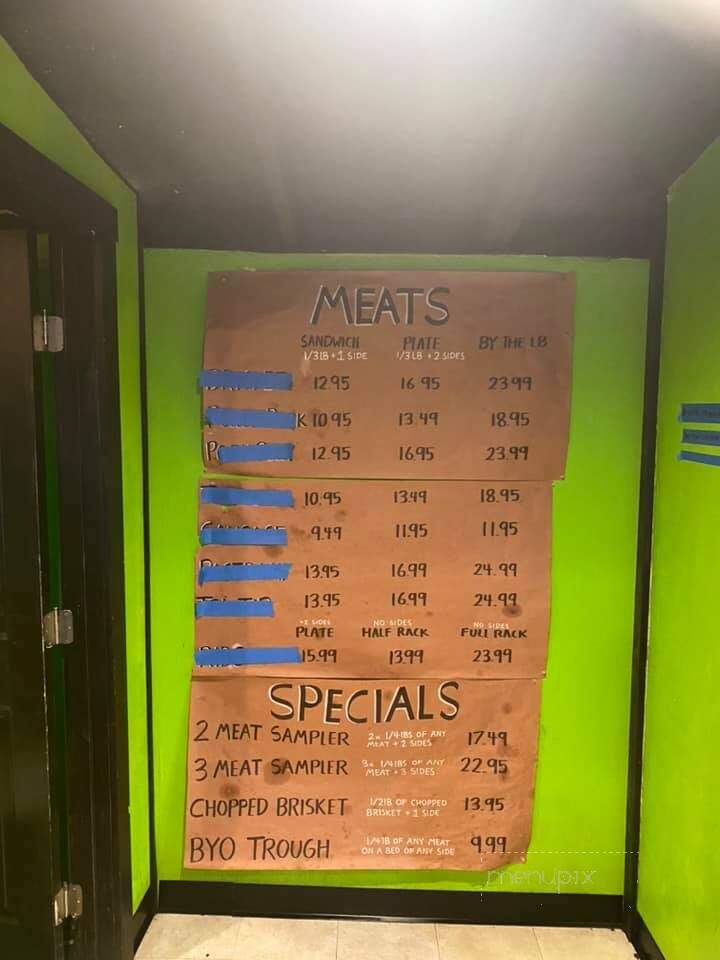 MEATS
SANDWICH PLATE BY THE LB
1/3 LB + 1 SIDE 1/3 LB + 2 SIDES
12.95 16 95 23 99
K 10 95 13.49 18.95
12.95 16.95 23.99
10.95 13.49 18.95
9.49 11.95 11.95
13.95 16.99 24.99
13.95 16.99 24.99
+2 SIDES NO SIDES NO SIDES
PLATE HALF RACK FULL RACK
15.99 13.99 23.99
SPECIALS
2 MEAT SAMPLER 2x 1/4 lBS OF ANY MEAT + 2 SIDES 17.49
3 MEAT SAMPLER 3x 1/4 lBS OF ANY MEAT + 3 SIDES 22.95
CHOPPED BRISKET 1/2 lB OF CHOPPED BRISKET + 1 SIDE 13.95
BYO TROUGH 1/4 lB OF ANY MEAT ON A BED OF ANY SIDE 9.99
menupix